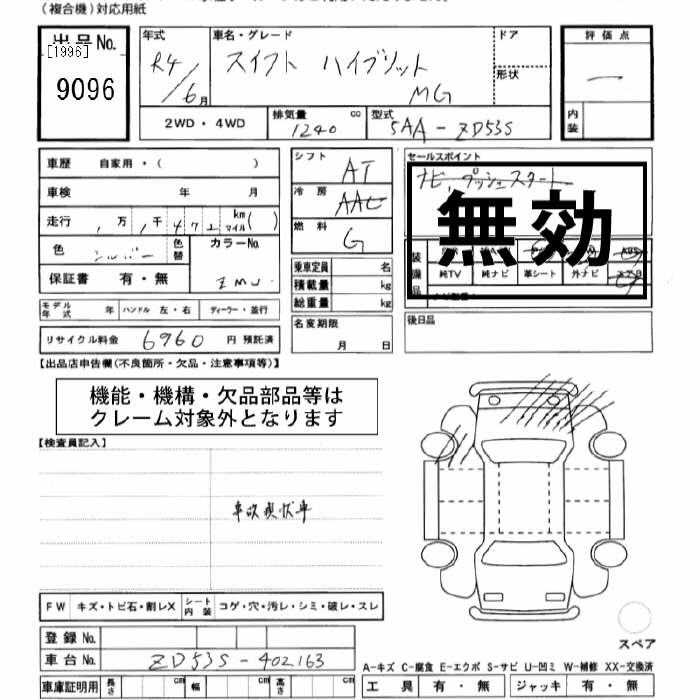 (複合機)対応用紙
出品No.
[1996]
9096
年式
R4/6月
車名・グレード
スイフト ハイブリット
MG
ドア
形状
評価点
ー
内装
2WD・4WD
排気量 1240 cc
型式 5AA-ZD53S
車歴 自家用・( )
車検 年 月
走行 1万 1千 472 km マイル ( )
色 シルバー 色替
カラーNo. ZMU
保証書 有・無
モデル年式 年 ハンドル 左・右 ディーラー・並行
リサイクル料金 6960 円 預託済
シフト AT
冷房 AAC
燃料 G
乗車定員 名
積載量 kg
総重量 kg
名変期限
月 日
セールスポイント
ナビ プッシュスタート
無効
装備品
純TV 純ナビ 革シート 外ナビ エアB
後日品
【出品店申告欄(不良箇所・欠品・注意事項等)】
機能・機構・欠品部品等は
クレーム対象外となります
【検査員記入】
事故現状車
FW キズ・トビ石・割レX シート内装 コゲ・穴・汚レ・シミ・破レ・スレ
登録No.
車台No. ZD53S-402163
車庫証明用 長さ cm 幅 cm 高さ cm
スペア
A-キズ C-腐食 E-エクボ S-サビ U-凹ミ W-補修 XX-交換済
工具 有・無 ジャッキ 有・無